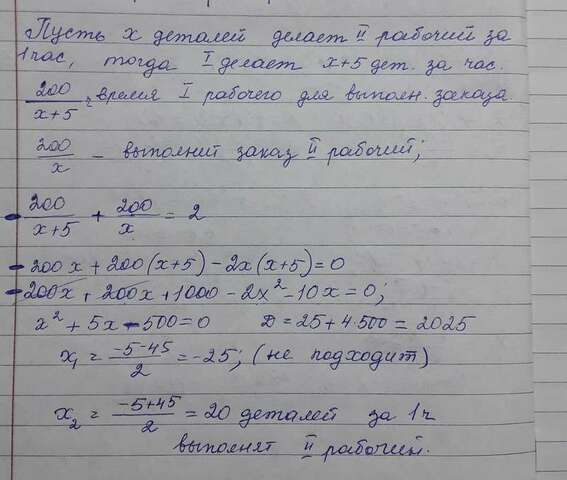 Пусть x деталей делает II рабочий за
1 час, тогда I делает x+5 дет. за час.
200/x+5 - время I рабочего для выполн. заказа
200/x - выполнит заказ II рабочий;
- 200/x+5 + 200/x = 2
- 200x + 200(x+5) - 2x(x+5) = 0
- 200x + 200x + 1000 - 2x² - 10x = 0;
x² + 5x - 500 = 0 D = 25 + 4·500 = 2025
x₁ = -5-45/2 = -25; (не подходит)
x₂ = -5+45/2 = 20 деталей за 1ч
выполнят II рабочий.